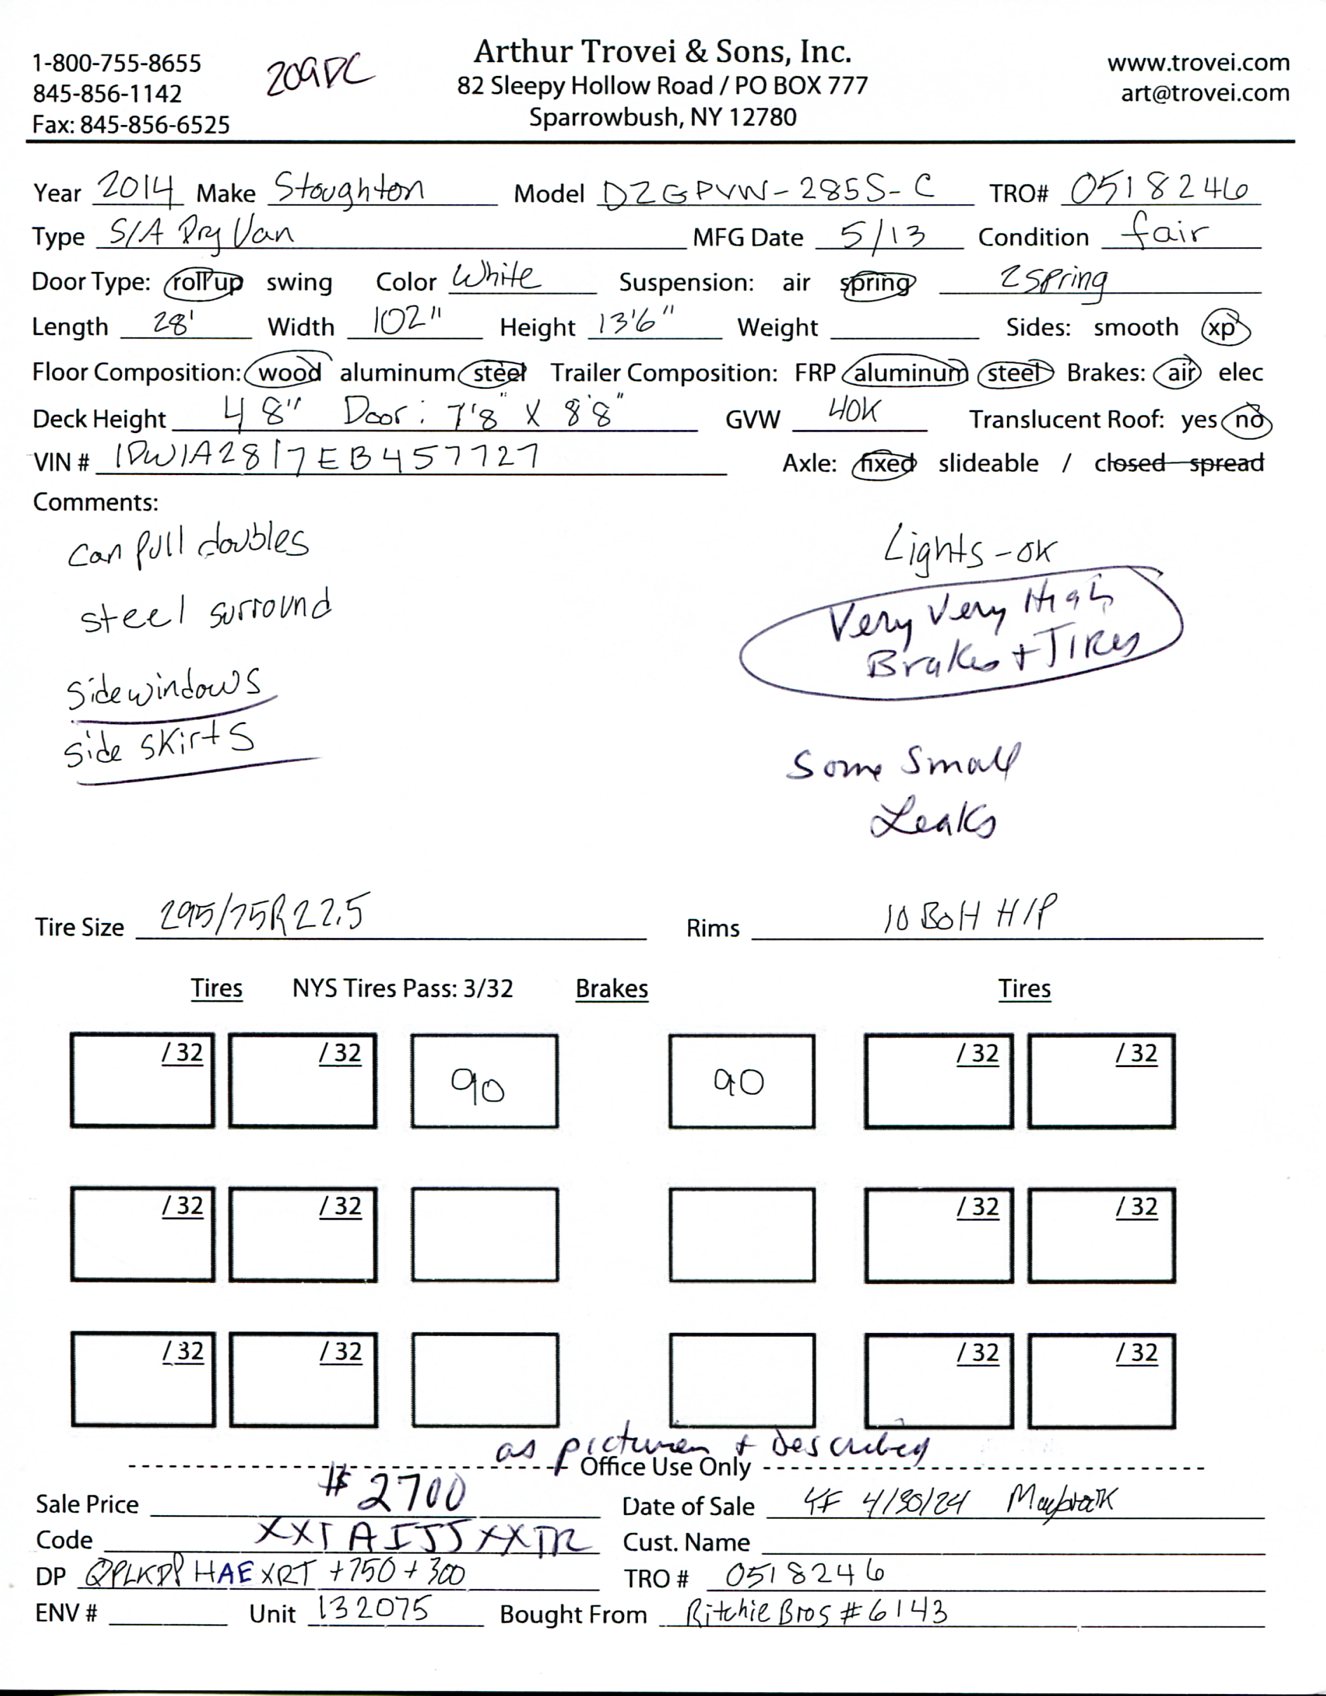 1-800-755-8655
845-856-1142
Fax: 845-856-6525
209DC
Arthur Trovei & Sons, Inc.
82 Sleepy Hollow Road / PO BOX 777
Sparrowbush, NY 12780
www.trovei.com
art@trovei.com
Year 2014 Make Stoughton Model DZGPVW-285S-C TRO# 0518246
Type S/A Dry Van MFG Date 5/13 Condition fair
Door Type: roll up swing Color White Suspension: air spring 2 spring
Length 28' Width 102" Height 13'6" Weight Sides: smooth xp
Floor Composition: wood aluminum steel Trailer Composition: FRP aluminum steel Brakes: air elec
Deck Height 48" Door: 7'8" X 8'8" GVW 40K Translucent Roof: yes no
VIN # 1DW1A2817EB457727 Axle: fixed slideable / closed spread
Comments:
can pull doubles
steel surround
sidewindows
side skirts
Lights-ok
Very Very High
Brakes + Tires
Some Small
Leaks
Tire Size 295/75R22.5 Rims 10 BoH H/P
Tires NYS Tires Pass: 3/32 Brakes Tires
/32 /32 90 90 /32 /32
/32 /32 /32 /32
/32 /32 /32 /32
as pictured + described
Office Use Only
Sale Price $2700 Date of Sale 4/30/24
Code Cust. Name
DP +750+300 TRO # 0518246
ENV # Unit 132075 Bought From Ritchie Bros #6143